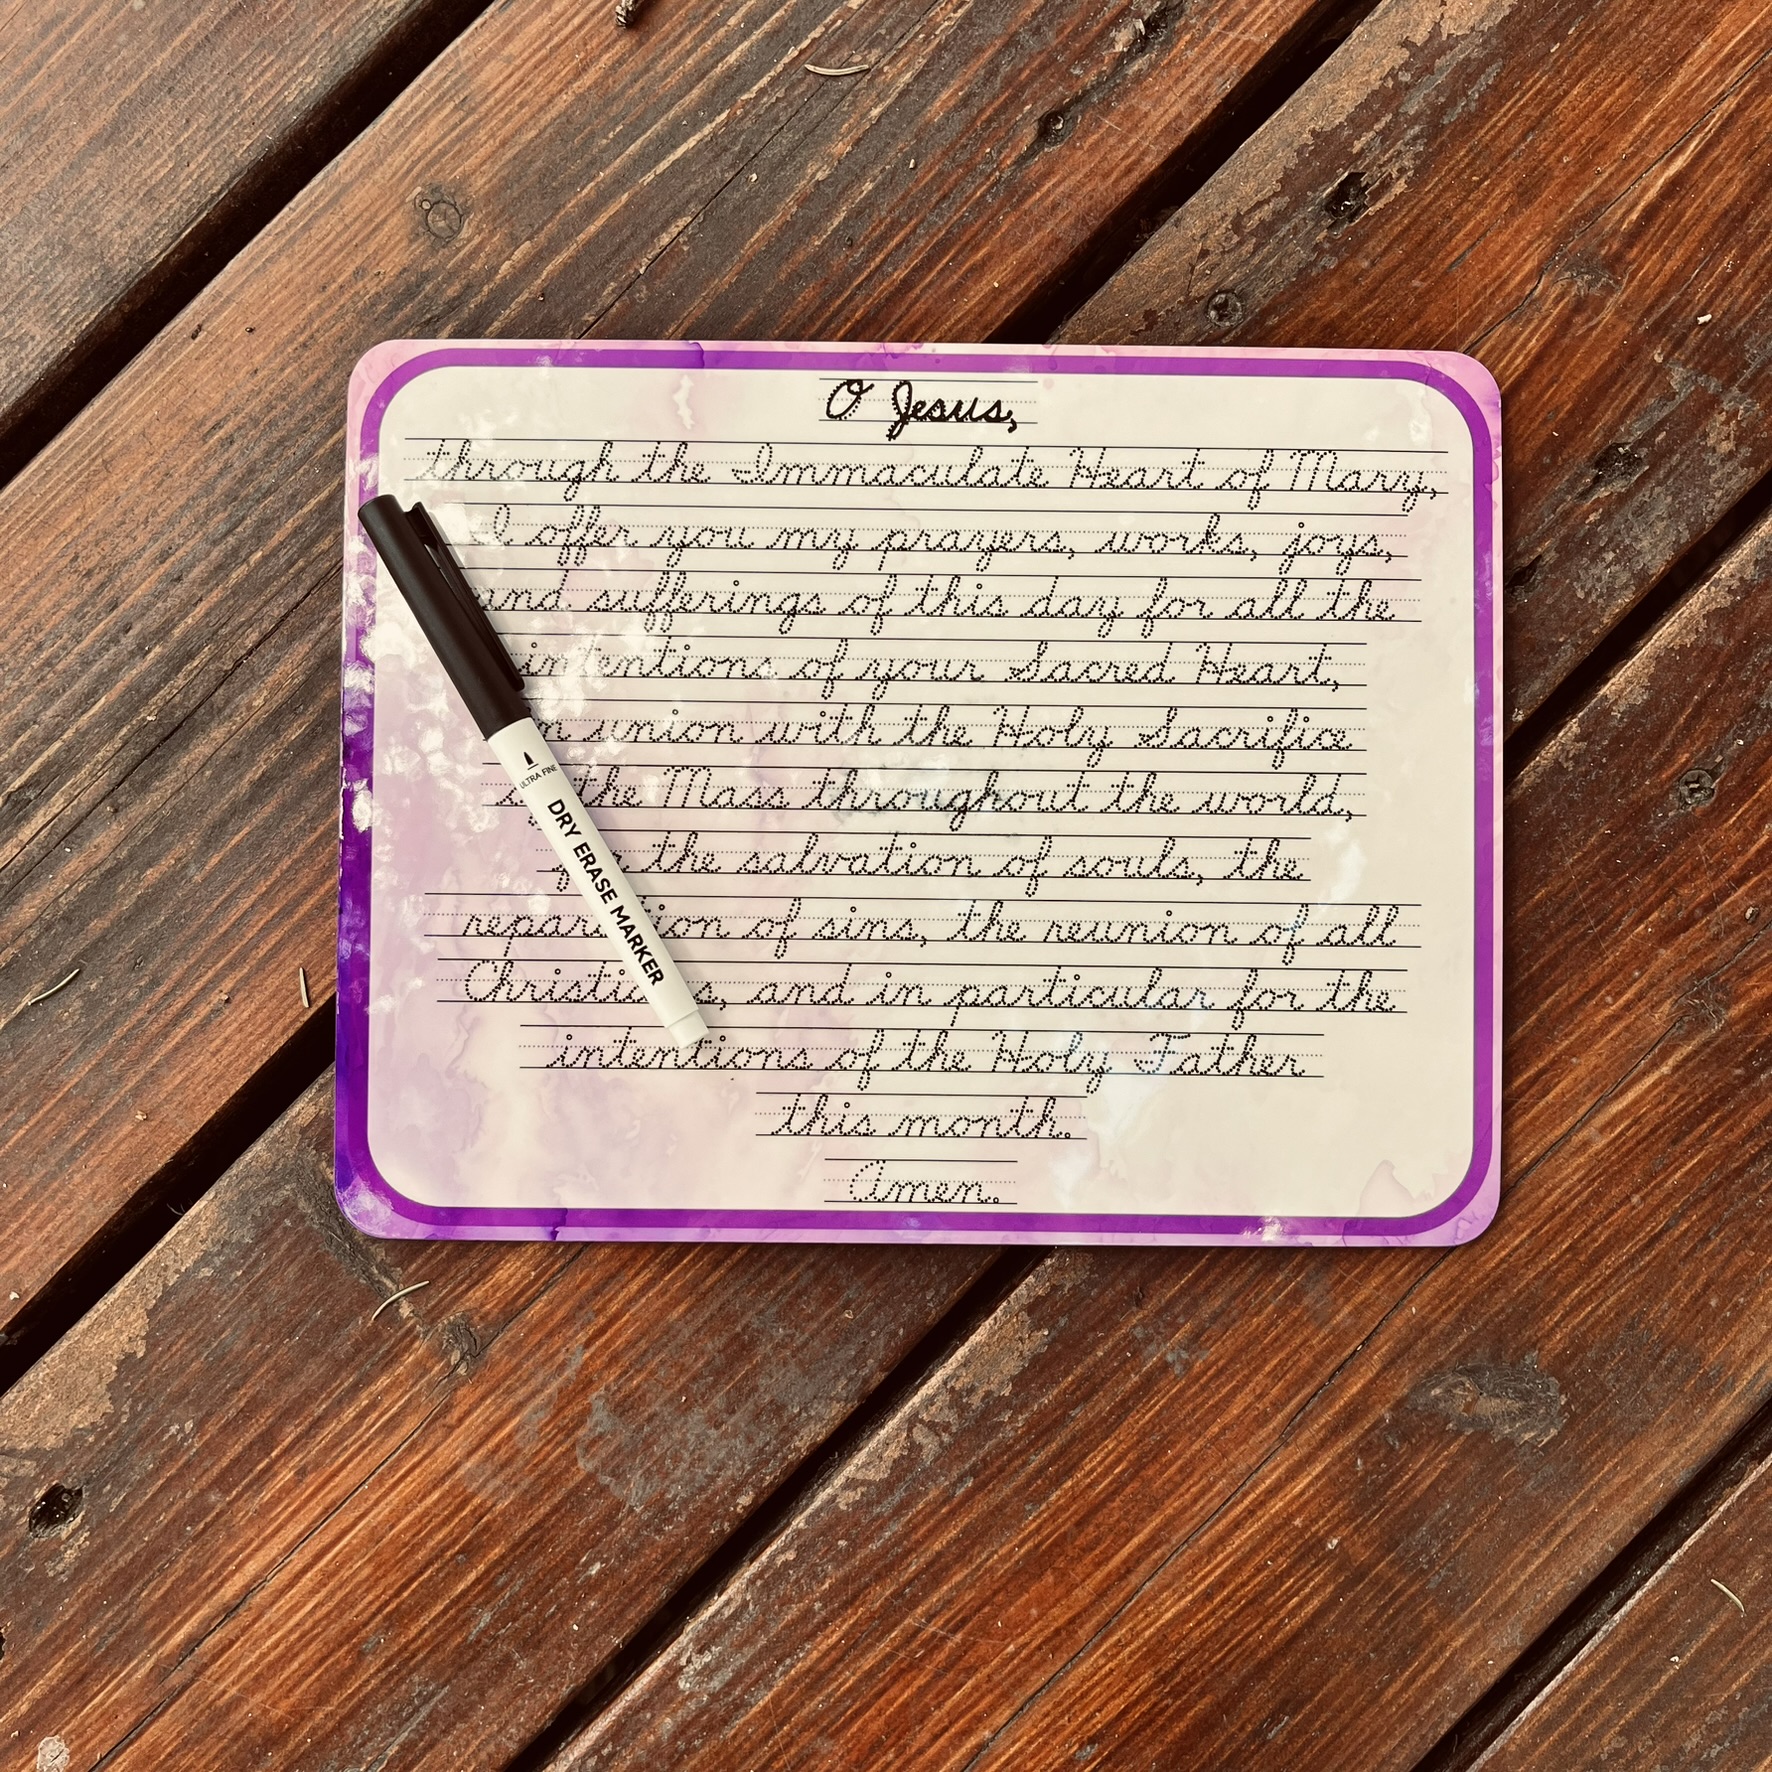 O Jesus,
through the Immaculate Heart of Mary,
I offer you my prayers, works, joys,
and sufferings of this day for all the
intentions of your Sacred Heart,
union with the Holy Sacrifice
the Mass throughout the world,
the salvation of souls, the
reparation of sins, the reunion of all
Christians, and in particular for the
intentions of the Holy Father
this month.
Amen.
ULTRA FINE
DRY ERASE MARKER